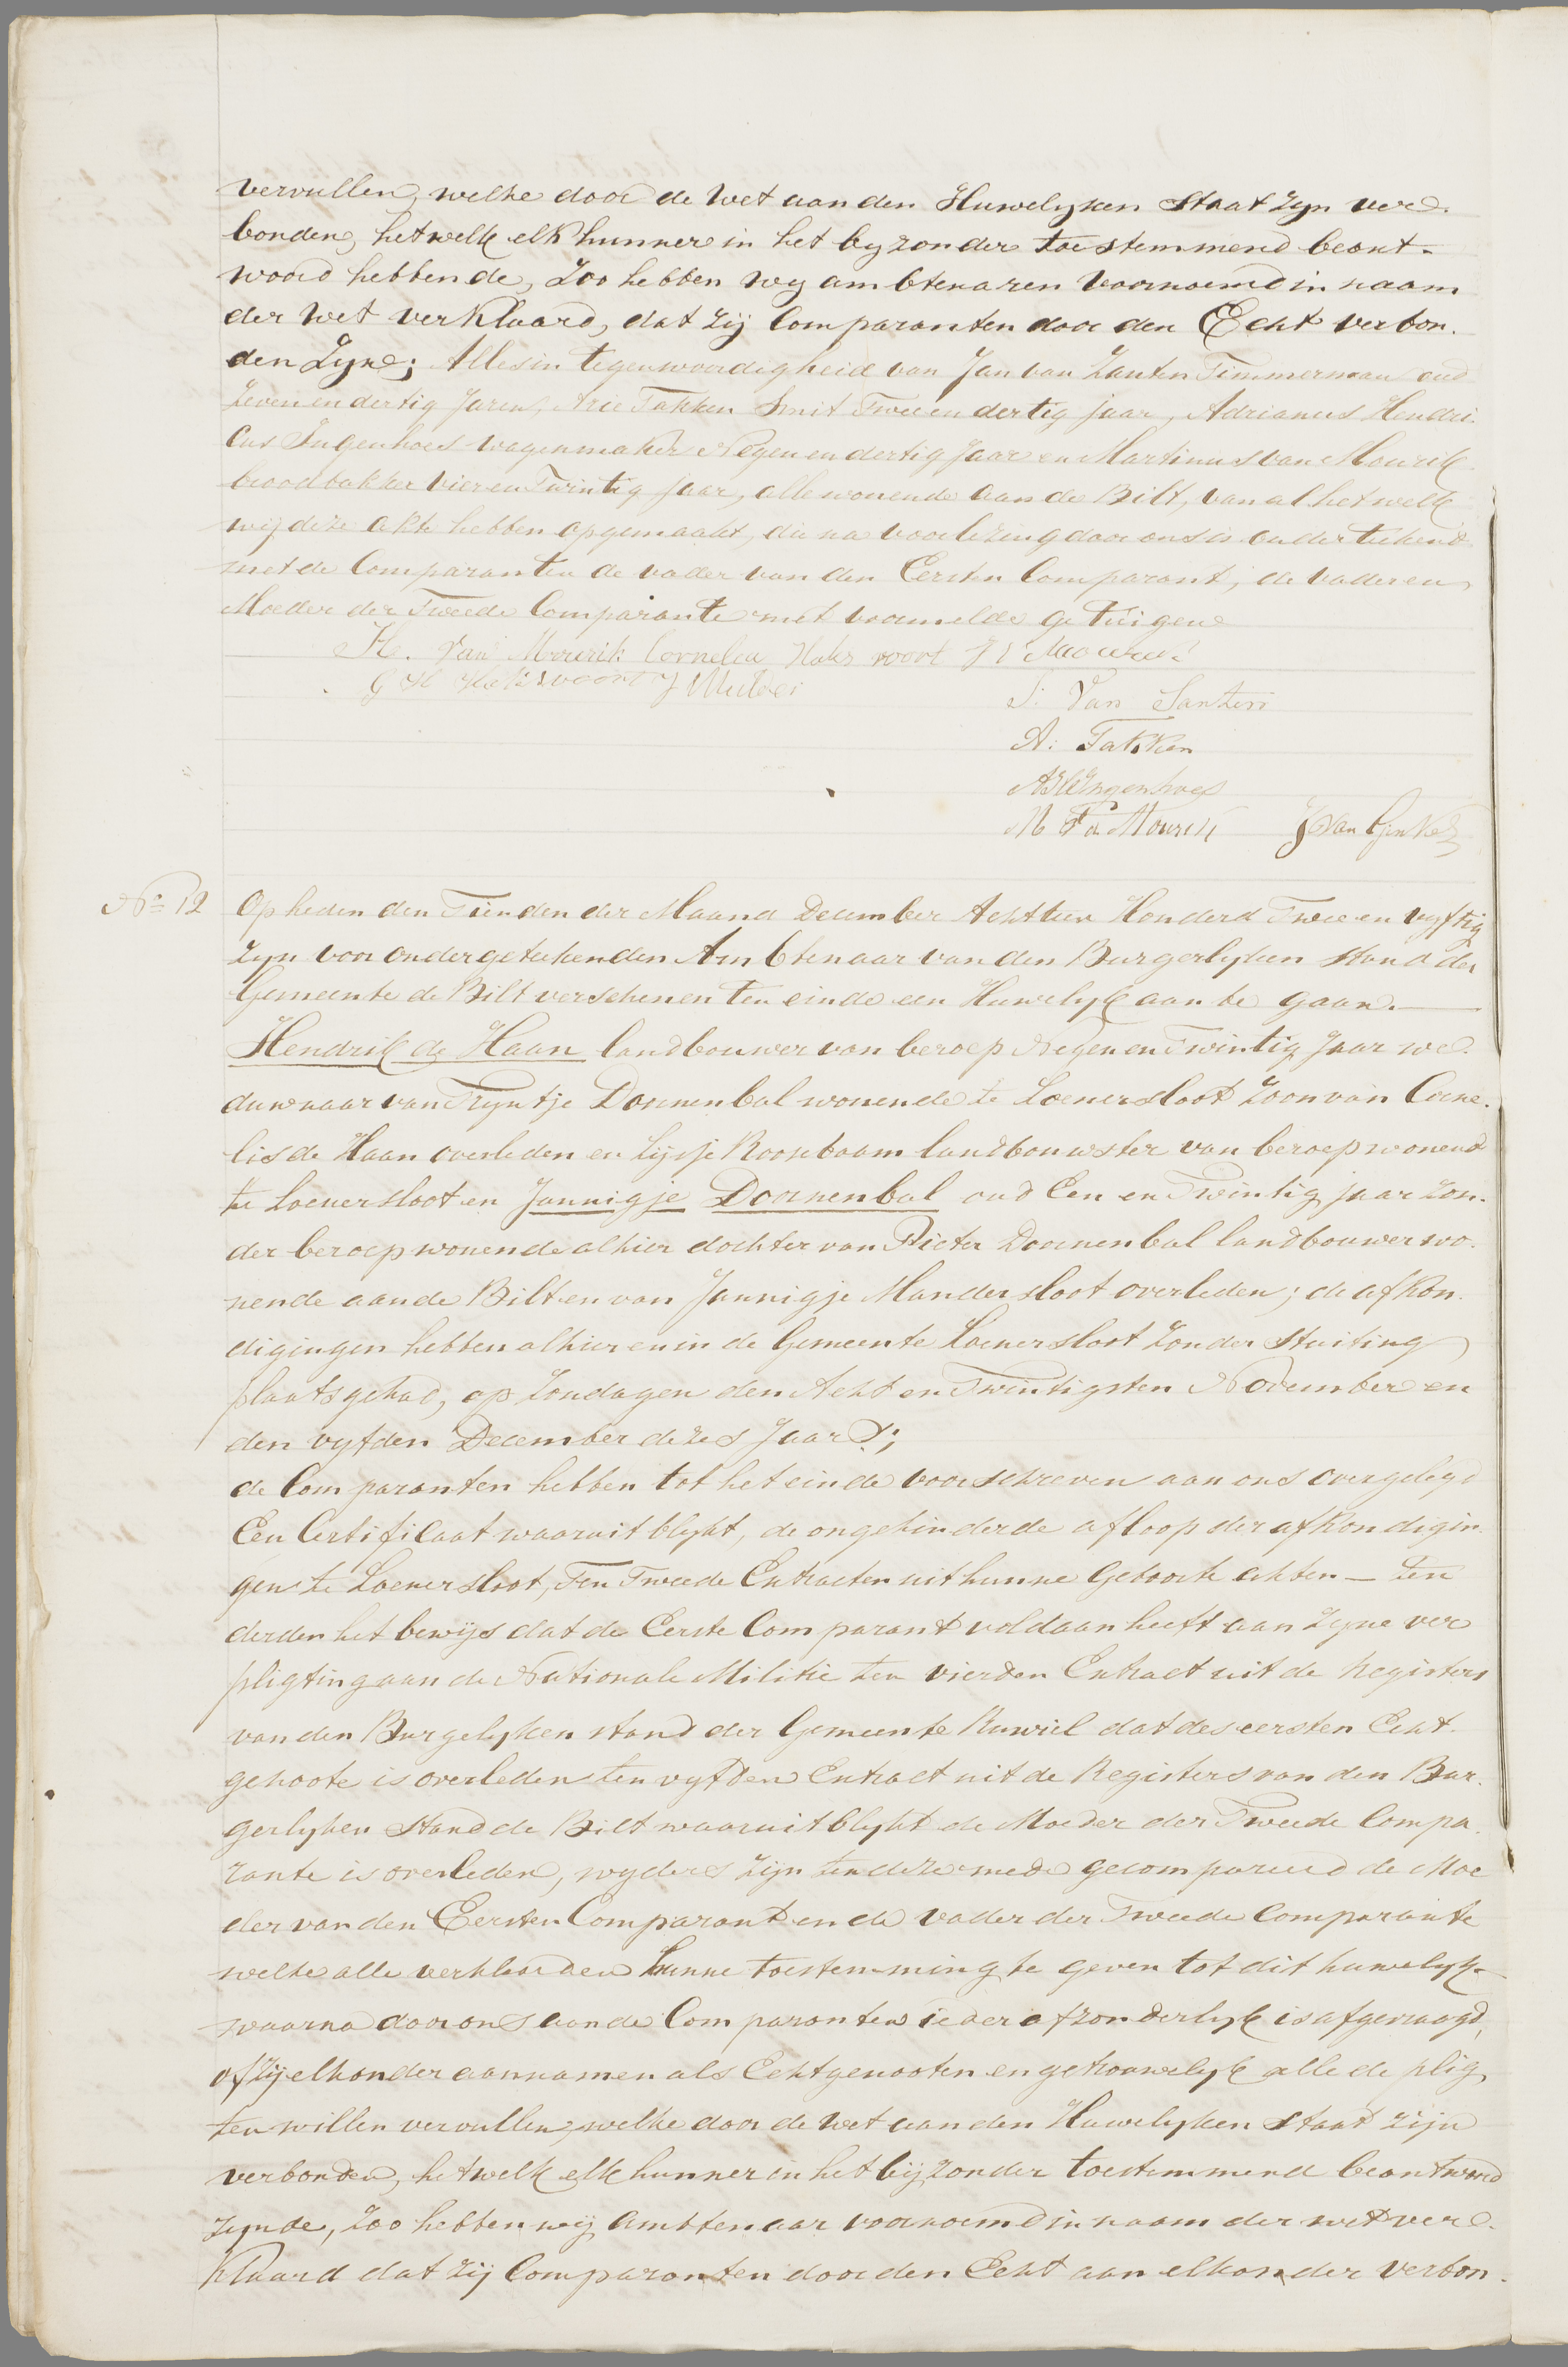 vervullen, welke door de Wet aan den Huwelyken Staat zyn ver-
bonden, hetwelk elk hunner in het byzonder toestemmend beant-
woord hebbende, Zoo hebben wy ambtenaren voornoemd in naam
der Wet verklaard, dat zij Comparanten door den Echt verbon-
den Zyn; Alles in tegenwoordigheid van Jan van Zanten Timmerman oud
Zeven en dertig Jaren, Arie Takken Smit Twee en dertig jaar, Adrianus Hendri-
cus Ingenhoes wagenmaker Negen en dertig Jaar en Martinus van Mourik
broodbakker vier en Twintig jaar, alle wonende aan de Bilt, van al hetwelk
wij deze akte hebben opgemaakt, die na voorlezing door ons is onderteekend
met de Comparanten de vader van den Eersten Comparant, de vader en
Moeder der Tweede Comparante met voormelde getuigen
H. Van Mourik Cornelia Haksvoort
G H Haksvoort J Mulder
J. Van Santen
A: Takken
AHIngenhoes
M Va Mourik J van Ginkel
No 12 Op heden den Tienden der Maand December Achttien Honderd Twee en vyftig
zyn voor ondergetekenden Ambtenaar van den Burgerlyken Stand der
Gemeente de Bilt verschenen ten einde een Huwelyk aan te gaan.
Hendrik de Haan landbouwer van beroep Negen en Twintig Jaar we-
duwnaar van Tryntje Doornenbal wonende te Loenersloot Zoon van Corne-
lis de Haan overleden en Lijsje Rooseboom landbouwster van beroep wonend
te Loenersloot en Jannigje Doornenbal oud Een en Twintig jaar zon-
der beroep wonende alhier dochter van Pieter Doornenbal landbouwer wo-
nende aan de Bilt en van Jannigje Mandersloot overleden; de afkon-
digingen hebben alhier en in de Gemeente Loenersloot zonder stuiting
plaats gehad, op Zondagen den Acht en Twintigsten November en
den vyfden December dezes Jaars;
de Comparanten hebben tot het einde voorschreven aan ons overgelegd
Een Certificaat waaruit blykt, de ongehinderde afloop der afkondigin-
gen te Loenersloot, Ten Tweede Extracten uit hunne Geboorte akten — ten
derden het bewijs dat de Eerste Comparant voldaan heeft aan zyne ver
pligting aan de Nationale Militie ten vierden Extract uit de Registers
van den Burgelyken stand der Gemeente Ruwiel dat des eersten Echt-
genoote is overleden ten vyfden Extract uit de Registers van den Bur-
gerlyken Stand de Bilt waaruit blykt de Moeder der Tweede Compa-
rante is overleden, wyders zijn ten deze mede gecompareerd de Moe
der van den Eersten Comparant en de vader der Tweede Comparante
welke alle verklaarden hunne toestemming te geven tot dit huwelyk
waarna door ons aan de Comparanten ieder afzonderlyk is afgevraagd,
of Zij elkander aannamen als Echtgenooten en getrouwelyk alle de plig
ten willen vervullen, welke door de Wet aan den Huwelyken Staat zijn
verbonden, hetwelk elk hunner in het bijzonder toestemmend beantwoord
zynde, Zoo hebben wij ambtenaar voornoemd in naam der wet ver-
klaard dat zij Comparanten door den Echt aan elkander verbon-